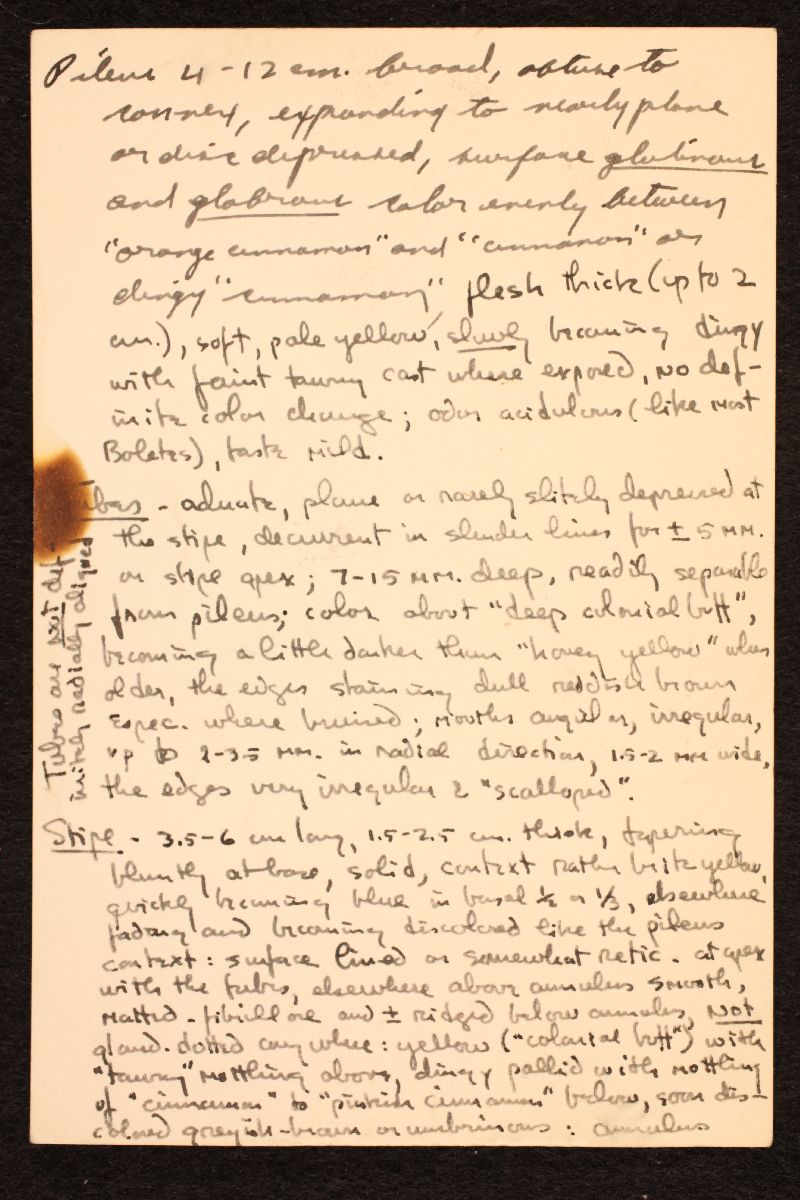 Pileus 4-12 cm. broad, obtuse to
convex, expanding to nearly plane
or disc depressed, surface glutinous
and glabrous color evenly between
"orange cinnamon" and "cinnamon" or
dingy "cinnamon", flesh thick (up to 2
cm.), soft, pale yellow, slowly becoming dingy
with faint tawny cast where exposed, no def-
inite color change; odor acidulous (like most
Boletes), taste mild.
Tubes - adnate, plane or rarely slitely depressed at
the stipe, decurrent in slender lines for ± 5 mm.
on stipe apex; 7-15 mm. deep, readily separable
from pileus; color about "deep colonial buff",
becoming a little darker than "honey yellow" when
older, the edges staining dull reddish brown
espec. where bruised; mouths angular, irregular,
up to 2-3.5 mm. in radial direction, 1.5-2 mm wide,
the edges very irregular & "scalloped".
Tubes are not def-
initely radially aligned
Stipe - 3.5-6 cm long, 1.5-2.5 cm. thick, tapering
bluntly at base, solid, context rather brite yellow,
quickly becoming blue in basal ½ or ⅓, elsewhere
fading and becoming discolored like the pileus
context: surface lined or somewhat retic. at apex
with the tubes, elsewhere above annulus smooth,
matted-fibrillose and ± ridged below annulus, not
gland. dotted anywhere: yellow ("colonial buff") with
"tawny" mottling above, dingy pallid with mottling
of "cinnamon" to "pinkish cinnamon" below, soon dis-
colored greyish-brown or umbrinous: annulus